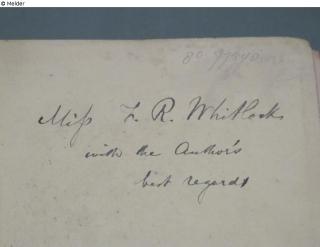 © Helder
Miss F. R. Whitlock
with the Author's
best regards